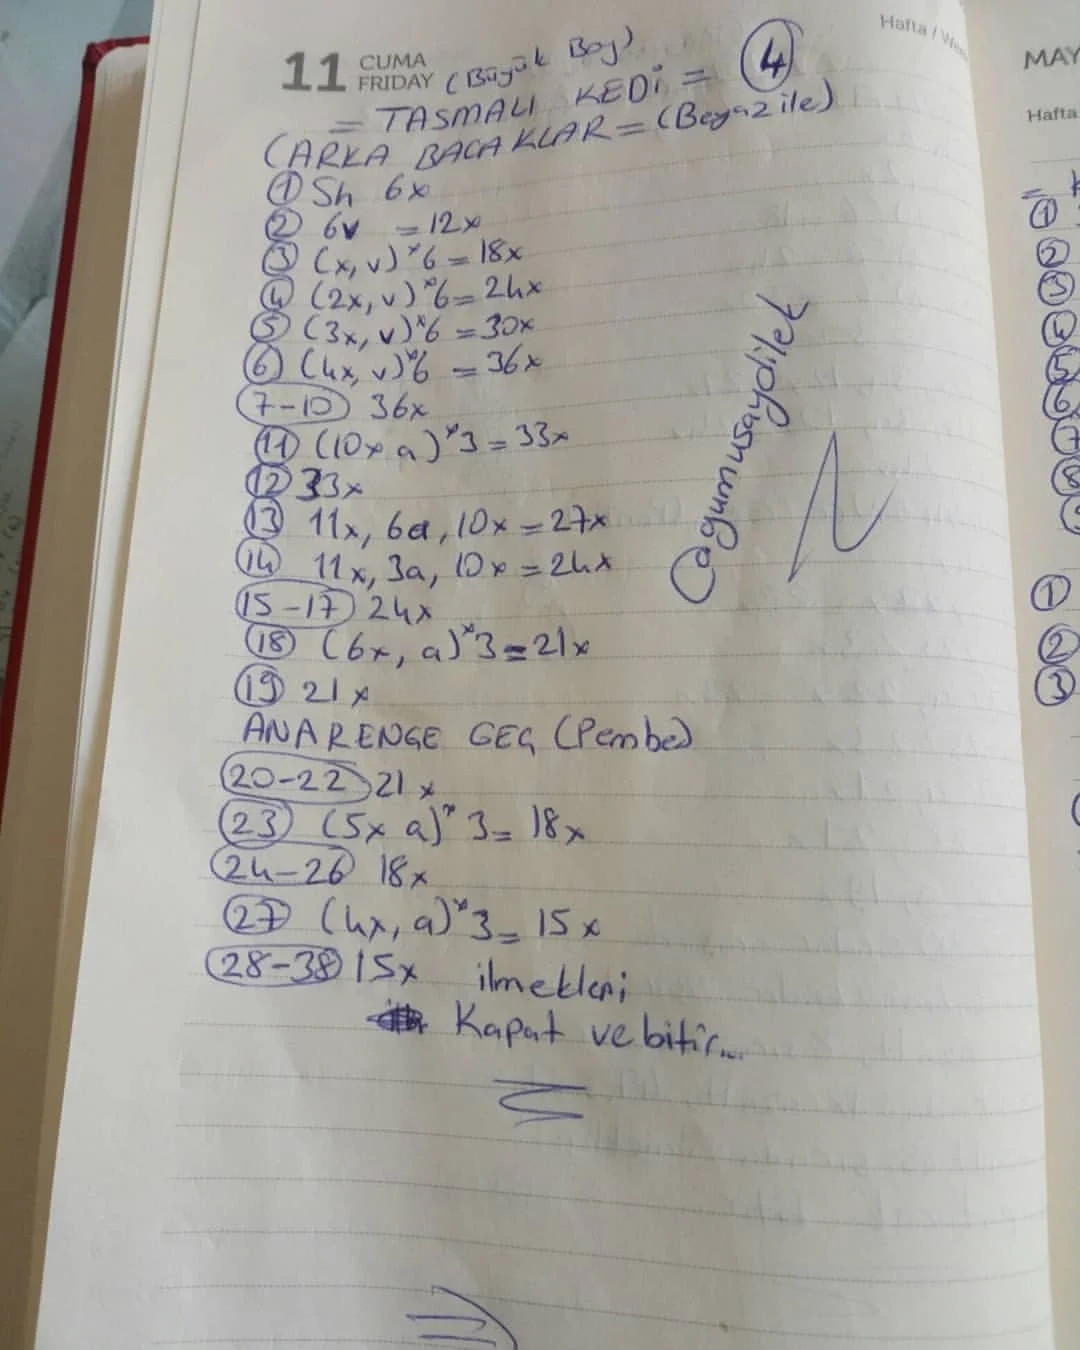 Hafta /
11 CUMA
FRIDAY (Büyük Boy)
= TASMALI KEDİ = 4
(ARKA BACAKLAR = (Beyaz ile)
① Sh 6x
② 6v = 12x
③ (x, v)*6 = 18x
④ (2x, v)*6 = 24x
⑤ (3x, v)*6 = 30x
⑥ (4x, v)*6 = 36x
7-10 36x
11 (10x a)*3 = 33x
12 33x
13 11x, 6a, 10x = 27x
14 11x, 3a, 10x = 24x
15-17 24x
18 (6x, a)*3 = 21x
19 21x
ANA RENGE GEÇ (Pembe)
20-22 21x
23 (5x a)*3 = 18x
24-26 18x
27 (4x, a)*3 = 15x
28-38 15x ilmekleri
Kapat ve bitir...
Cagumusaydilek
MAY
Hafta
①
②
③
④
⑤
⑥
⑦
⑧
①
②
③